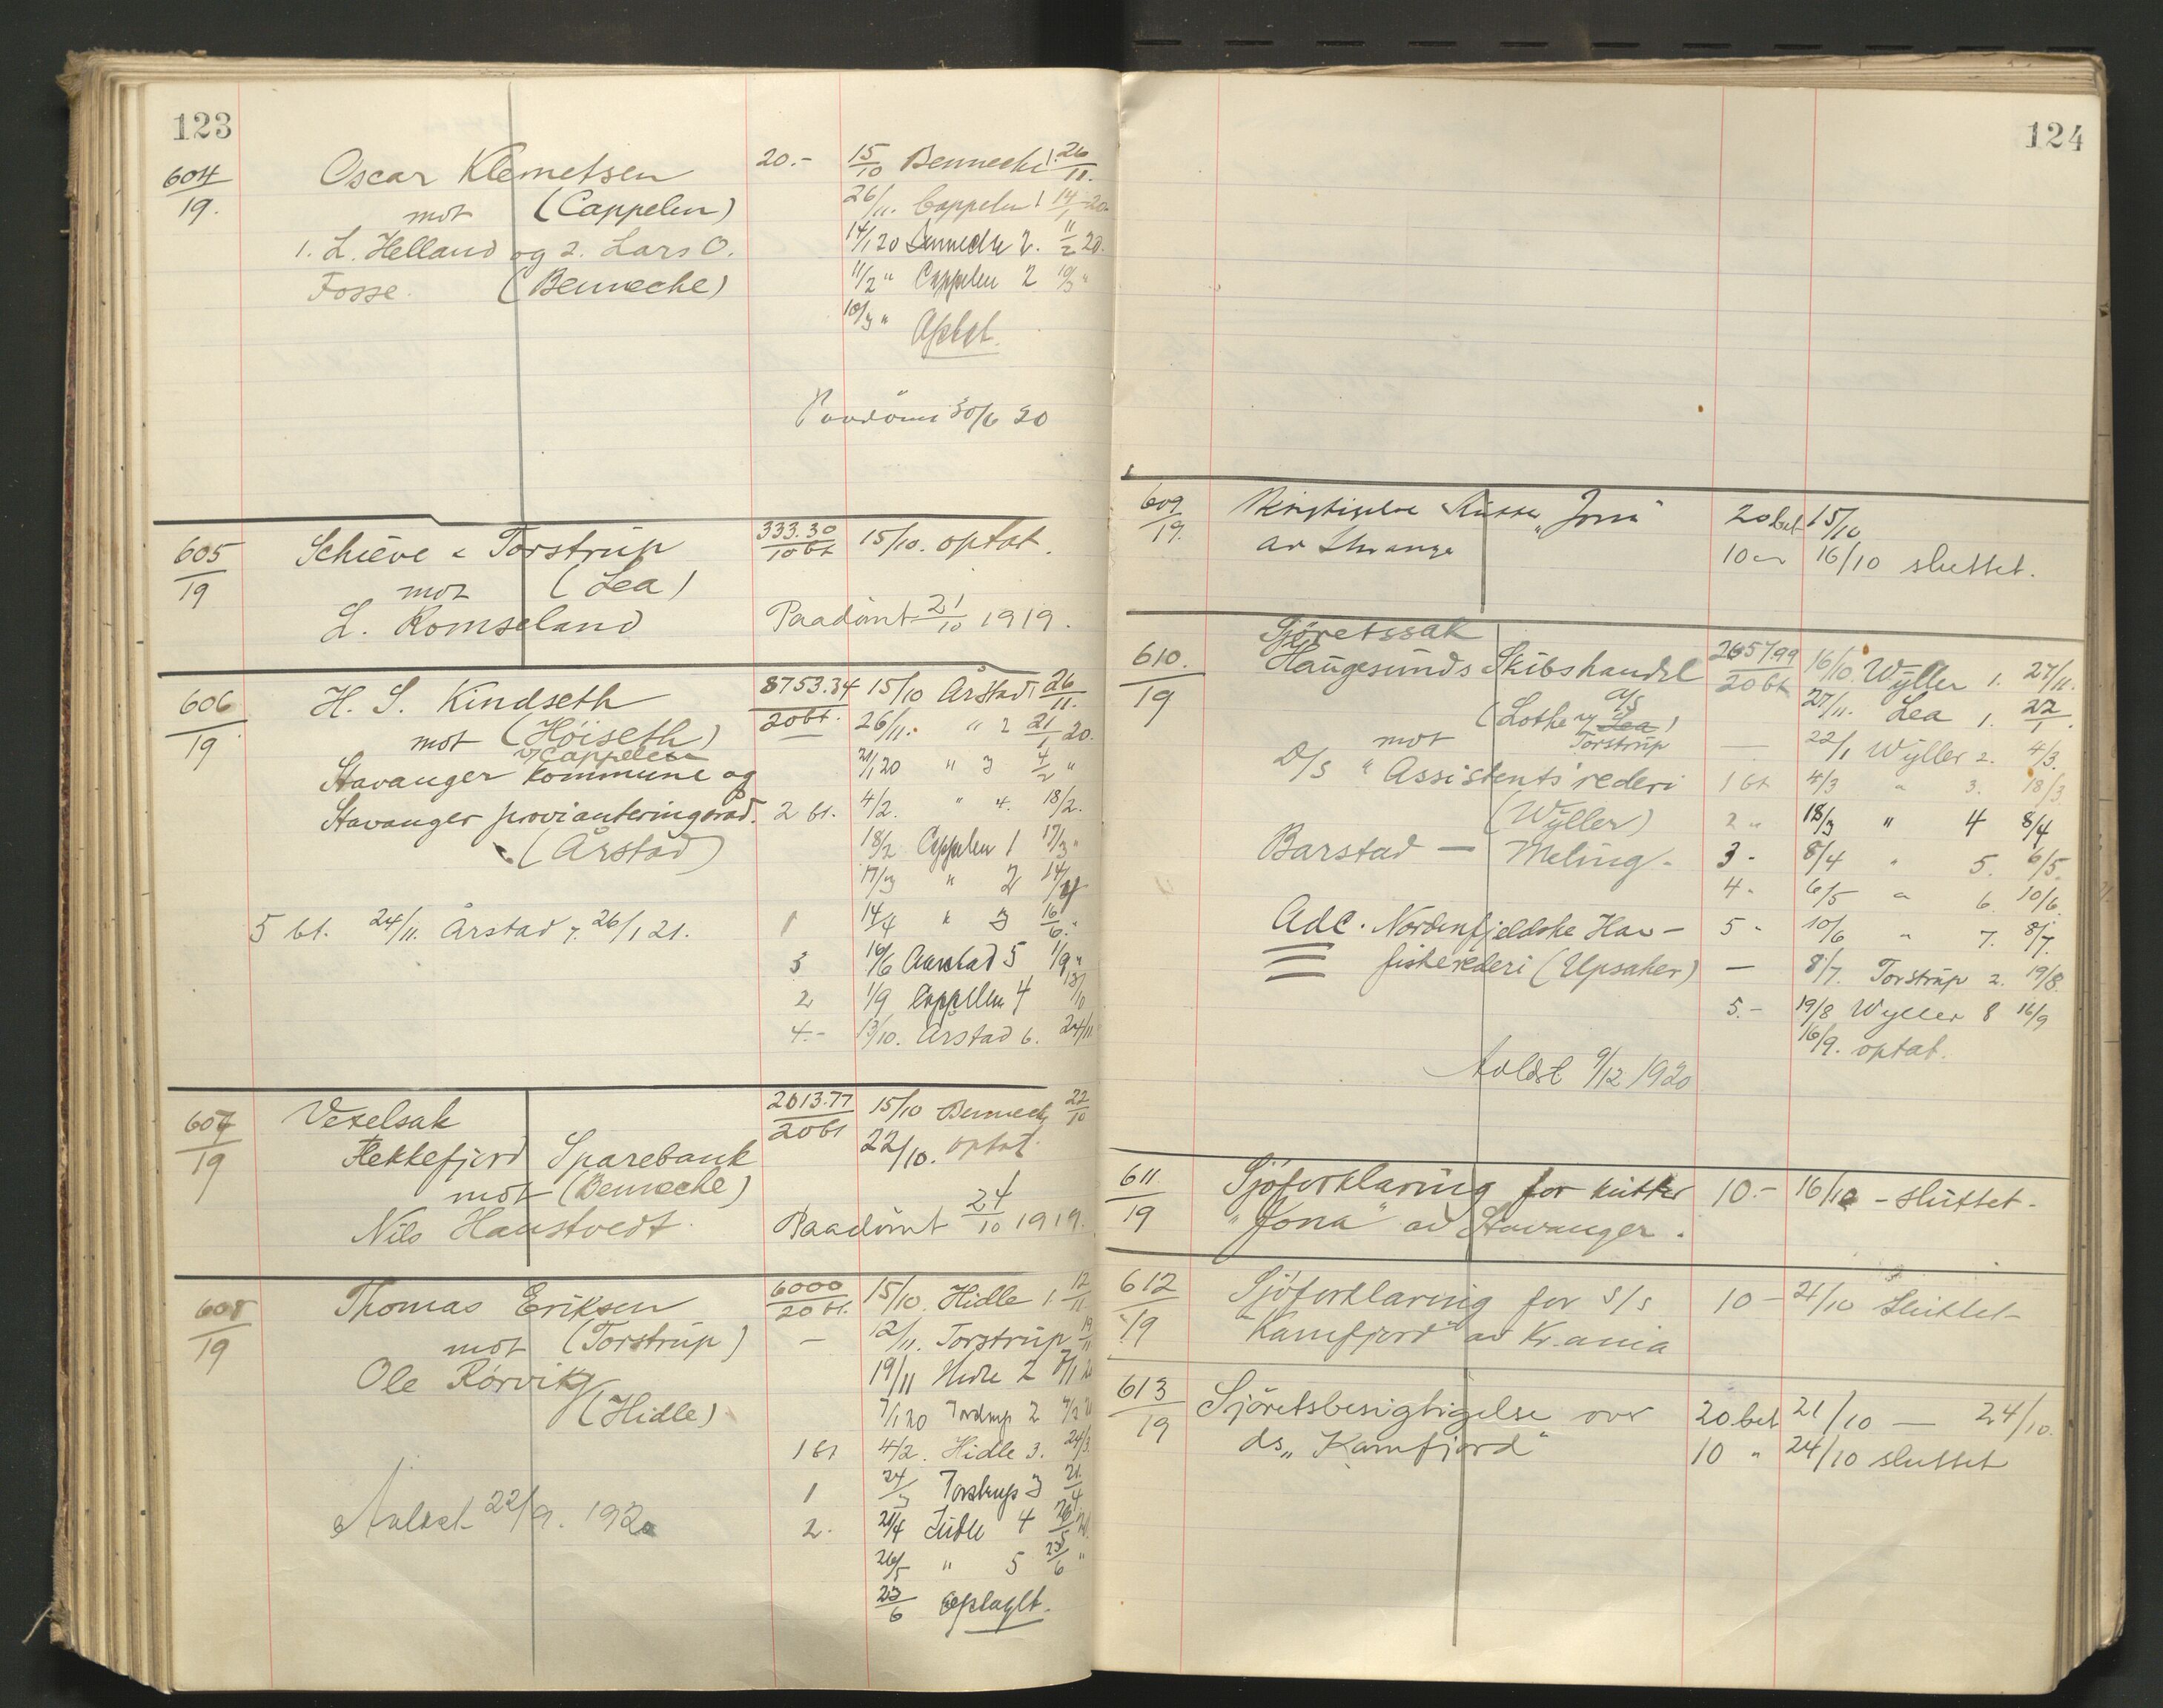 123
604/19. Oscar Klemetsen 20.- 15/10 Benneche 1. 26/11.
mot (Cappelen) 26/11. Cappelen 1 14/1 20.
1. L. Helland og 2. Lars O. 14/1 20 Benneche 2. 11/2 20.
Fosse. (Benneche) 11/2 " Cappelen 2 10/3 "
10/3 " Optat.
Paadömt 30/6 20
605/19 Schieve & Torstrup 333.30/10 bt 15/10. optat.
mot (Lea)
L. Romseland Paadömt 21/10 1919.
606/19 H. S. Kindseth 8753.34/20 bt. 15/10 Årstad 1 26/11.
mot (Höiseth) 26/11. " 2 21/1 20.
v/ Cappelen
Stavanger kommune og 21/1 20 " 3 4/2 "
Stavanger provianteringsråd. 2 bt. 4/2. " 4. 18/2.
(Årstad) 18/2 Cappelen 1 17/3 "
17/3 " 2 14/4
5 bt. 24/11. Årstad 7. 26/1 21. 1 14/4 " 3 16/6. "
3 16/6 Aarstad 5 1/9 "
2 1/9 Cappelen 4 13/10
4.- 13/10. Årstad 6. 24/11
607/19 Vexelsak 2613.77/20 bt 15/10 Bennech 22/10
Flekkefjord Sparebank 22/10. optat.
mot (Benneche)
Nils Haustvedt. Paadömt 24/10 1919.
608/19 Thomas Eriksen 6000/20 bt. 15/10. Hidle 1. 12/11
mot (Torstrup) — 12/11. Torstrup 19/11
Ole Rörvik 19/11 Hidle 2 7/1 20
(Hidle) 7/1 20 Torstrup 2 4/2 20
1 bt 4/2. Hidle 3. 24/3.
1 24/3 Torstrup 3 21/4
Avlest 22/9. 1920 2. 21/4 Hidle 4 26/5
26/5 " 5 23/6 "
23/6 oplagt.
124
609/19. "Jona" 20 bet 15/10
av 10 " 16/10 sluttet.
610./19 Sjöretssak
Haugesunds Skibshandel 2657.99/20 bt 16/10. Wyller 1. 27/11.
A/S 27/11. Lea 1. 22/1.
(Lothe v/ Lea)
mot Torstrup — 22/1 Wyller 2. 4/3.
D/S "Assistents" rederi 1 bt 4/3 " 3. 18/3
(Wyller) 2 " 18/3 " 4 8/4
Barstad — Meling. 3 - 8/4 " 5. 6/5.
4 - 6/5 " 6. 10/6.
Adc. Nordenfjeldske Hav- 5 - 10/6 " 7. 8/7.
fiskerederi (Upsaker) — 8/7. Torstrup 2. 19/8.
5.- 19/8 Wyller 8 16/9
16/9. optat.
Avlest 9/12 1920
611/19 Sjöforklaring for kutter 10.- 16/10 - sluttet-
"Jona" av Stavanger.
612/19 Sjöforklaring for s/s 10 - 21/10 sluttet-
"Kamfjord" av Kr.ania
613/19 Sjöretsbesigtigelse over 20. bet 21/10 — 24/10.
ds "Kamfjord" 10 " 24/10 sluttet